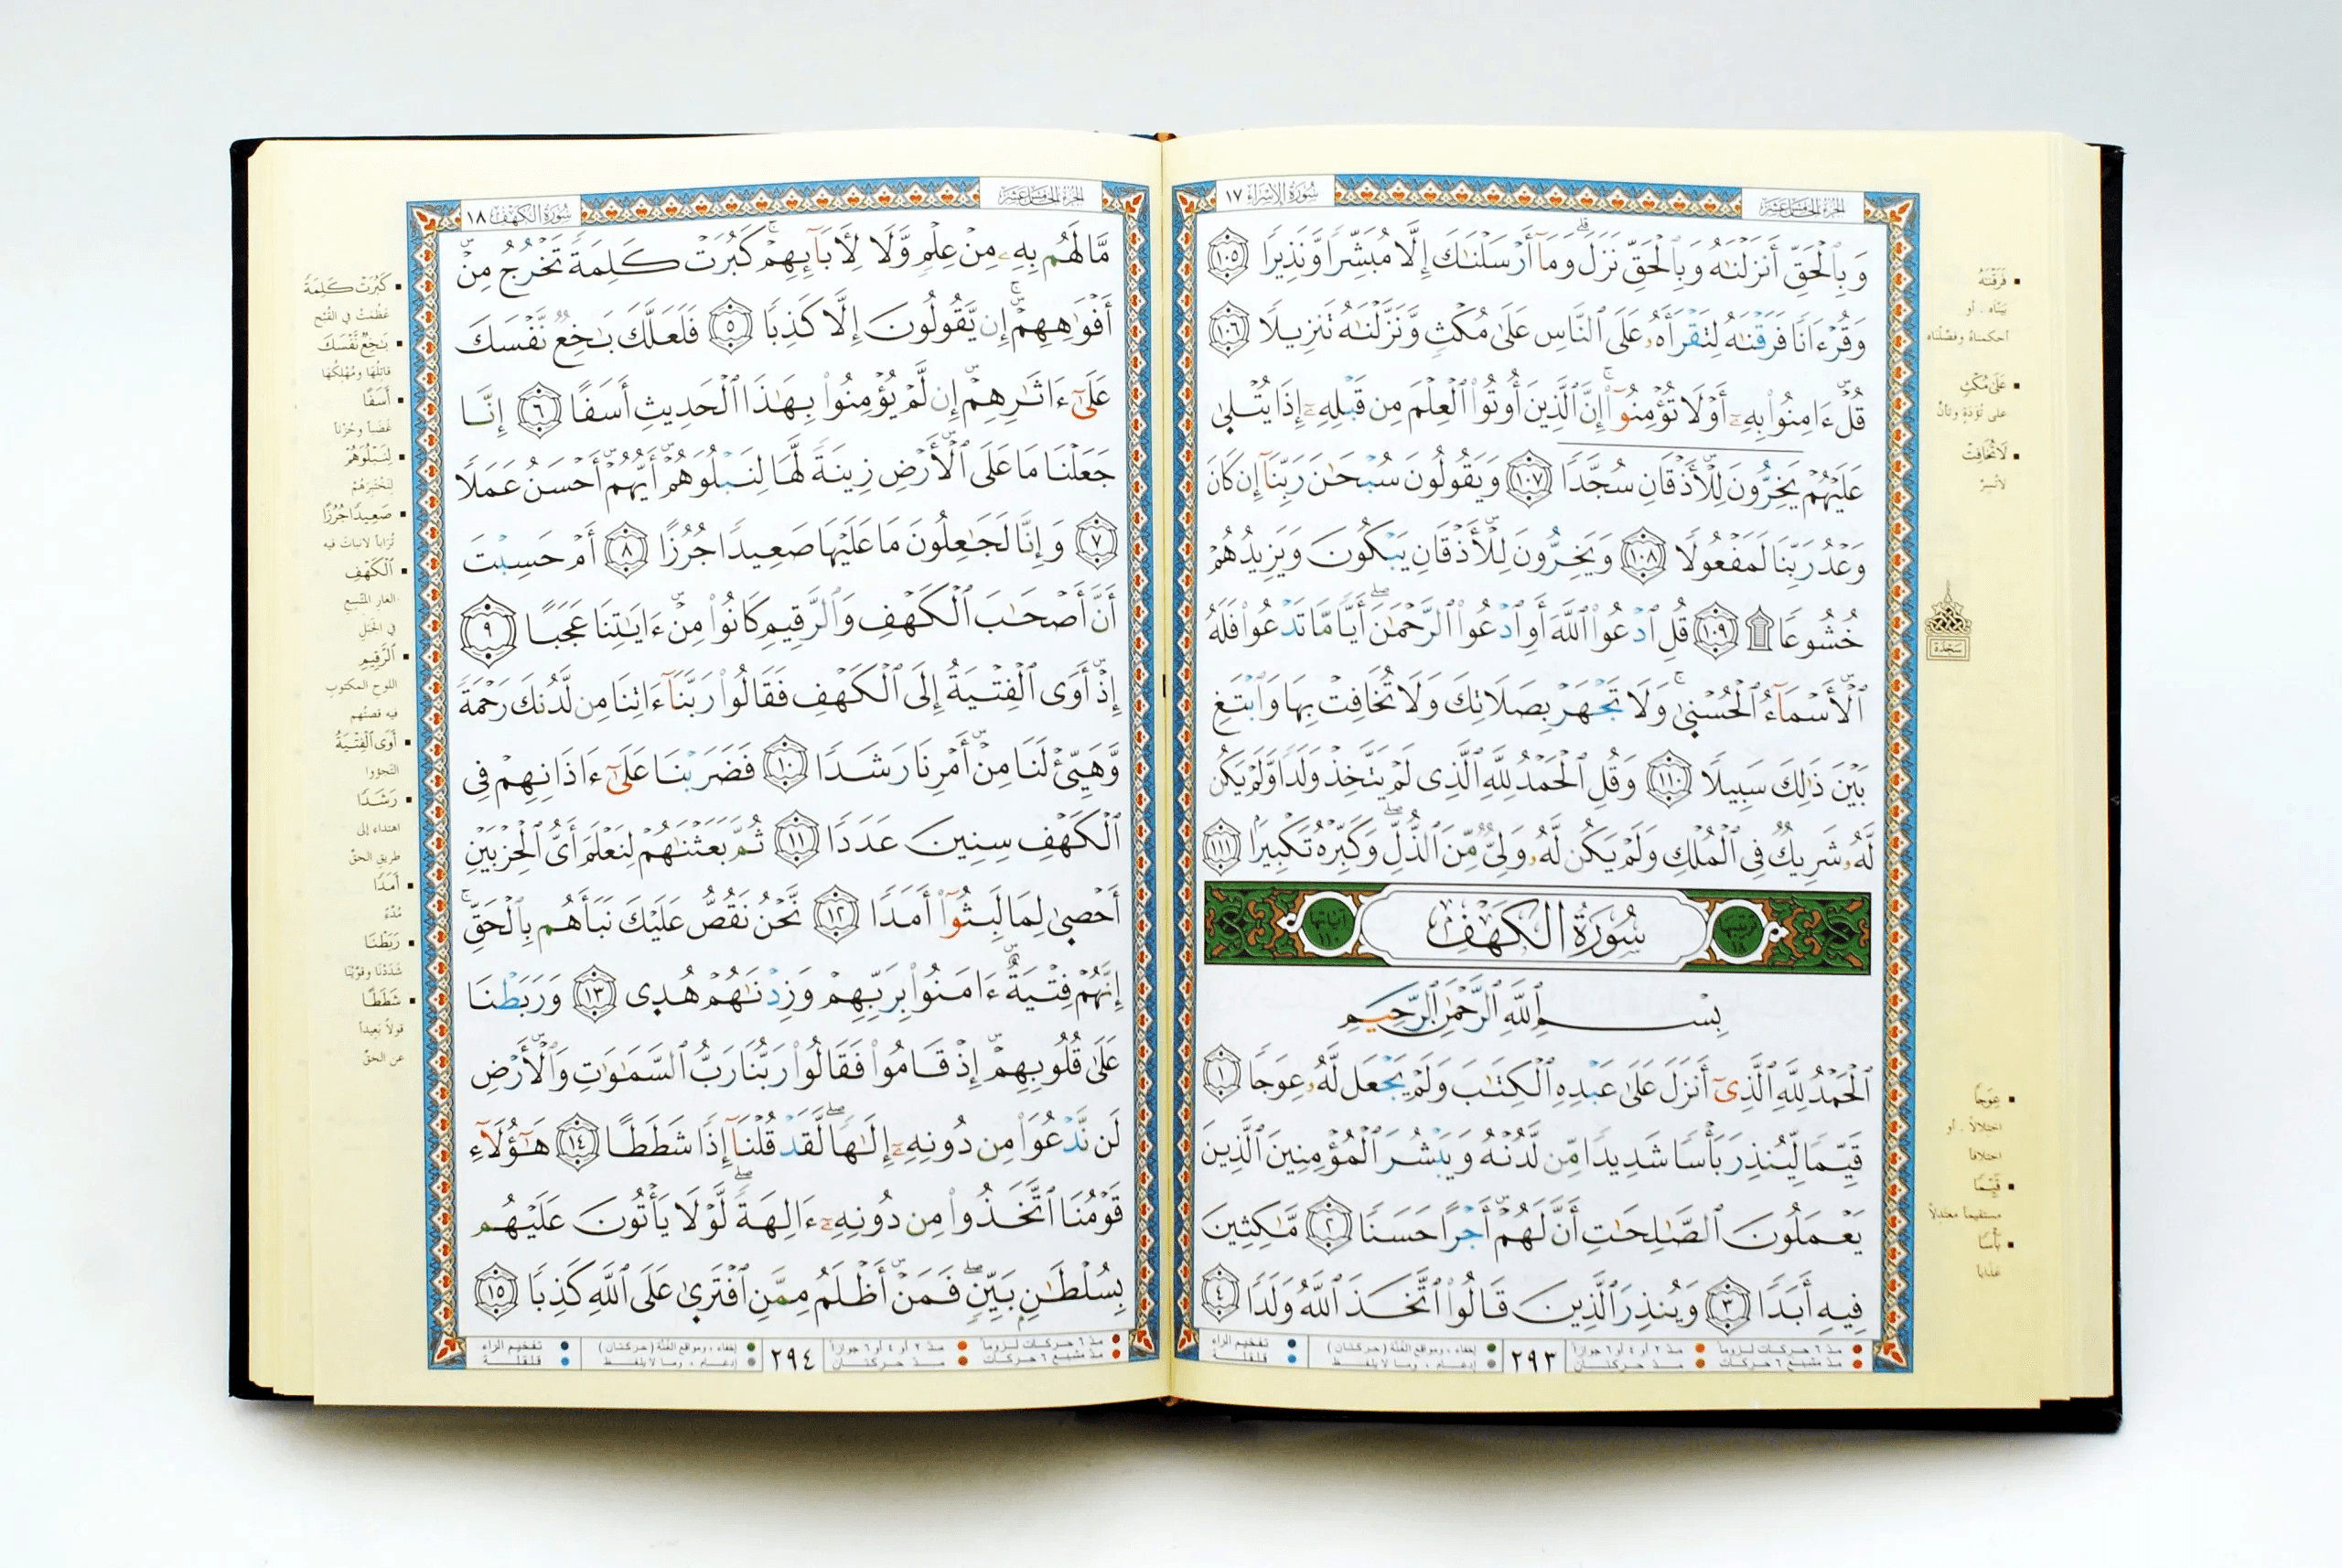 الجزء الخامس عشر
سورة الإسراء ١٧
وَبِٱلْحَقِّ أَنزَلْنَٰهُ وَبِٱلْحَقِّ نَزَلَ ۗ وَمَآ أَرْسَلْنَٰكَ إِلَّا مُبَشِّرًا وَنَذِيرًا ١٠٥
وَقُرْءَانًا فَرَقْنَٰهُ لِتَقْرَأَهُۥ عَلَى ٱلنَّاسِ عَلَىٰ مُكْثٍ وَنَزَّلْنَٰهُ تَنزِيلًا ١٠٦
قُلْ ءَامِنُوا۟ بِهِۦٓ أَوْ لَا تُؤْمِنُوٓا۟ ۚ إِنَّ ٱلَّذِينَ أُوتُوا۟ ٱلْعِلْمَ مِن قَبْلِهِۦٓ إِذَا يُتْلَىٰ
عَلَيْهِمْ يَخِرُّونَ لِلْأَذْقَانِ سُجَّدًا ١٠٧ وَيَقُولُونَ سُبْحَٰنَ رَبِّنَآ إِن كَانَ
وَعْدُ رَبِّنَا لَمَفْعُولًا ١٠٨ وَيَخِرُّونَ لِلْأَذْقَانِ يَبْكُونَ وَيَزِيدُهُمْ
خُشُوعًا ۩ ١٠٩ قُلِ ٱدْعُوا۟ ٱللَّهَ أَوِ ٱدْعُوا۟ ٱلرَّحْمَٰنَ ۖ أَيًّا مَّا تَدْعُوا۟ فَلَهُ
ٱلْأَسْمَآءُ ٱلْحُسْنَىٰ ۚ وَلَا تَجْهَرْ بِصَلَاتِكَ وَلَا تُخَافِتْ بِهَا وَٱبْتَغِ
بَيْنَ ذَٰلِكَ سَبِيلًا ١١٠ وَقُلِ ٱلْحَمْدُ لِلَّهِ ٱلَّذِى لَمْ يَتَّخِذْ وَلَدًا وَلَمْ يَكُن
لَّهُۥ شَرِيكٌ فِى ٱلْمُلْكِ وَلَمْ يَكُن لَّهُۥ وَلِىٌّ مِّنَ ٱلذُّلِّ ۖ وَكَبِّرْهُ تَكْبِيرًا ١١١
ترتيبها ١٨ سُورَةُ الكَهْفِ آياتها ١١٠
بِسْمِ ٱللَّهِ ٱلرَّحْمَٰنِ ٱلرَّحِيمِ
ٱلْحَمْدُ لِلَّهِ ٱلَّذِىٓ أَنزَلَ عَلَىٰ عَبْدِهِ ٱلْكِتَٰبَ وَلَمْ يَجْعَل لَّهُۥ عِوَجًا ١
قَيِّمًا لِّيُنذِرَ بَأْسًا شَدِيدًا مِّن لَّدُنْهُ وَيُبَشِّرَ ٱلْمُؤْمِنِينَ ٱلَّذِينَ
يَعْمَلُونَ ٱلصَّٰلِحَٰتِ أَنَّ لَهُمْ أَجْرًا حَسَنًا ٢ مَّٰكِثِينَ
فِيهِ أَبَدًا ٣ وَيُنذِرَ ٱلَّذِينَ قَالُوا۟ ٱتَّخَذَ ٱللَّهُ وَلَدًا ٤
فَرَقْنَٰهُ
بيّناه . أو
أحكمناهُ وفصّلناه
عَلَىٰ مُكْثٍ
على تُؤدَةٍ وتأنٍّ
لَا تُخَافِتْ
لا تُسِرَّ
سَجْدَة
عِوَجًا
اختلالاً . أو
اختلافاً
قَيِّمًا
مستقيماً معتدلاً
بَأْسًا
عذاباً
مدّ ٦ حركات لزوماً مدّ ٢ أو ٤ أو ٦ جوازاً
مدّ مشبع ٦ حركات مدّ حركتان
٢٩٣
إخفاء ، ومواقع الغُنَّة (حركتان) تفخيم الراء
إدغام ، وما لا يلفظ قلقلة
الجزء الخامس عشر
سورة الكهف ١٨
مَّا لَهُم بِهِۦ مِنْ عِلْمٍ وَلَا لِـَٔابَآئِهِمْ ۚ كَبُرَتْ كَلِمَةً تَخْرُجُ مِنْ
أَفْوَٰهِهِمْ ۚ إِن يَقُولُونَ إِلَّا كَذِبًا ٥ فَلَعَلَّكَ بَٰخِعٌ نَّفْسَكَ
عَلَىٰٓ ءَاثَٰرِهِمْ إِن لَّمْ يُؤْمِنُوا۟ بِهَٰذَا ٱلْحَدِيثِ أَسَفًا ٦ إِنَّا
جَعَلْنَا مَا عَلَى ٱلْأَرْضِ زِينَةً لَّهَا لِنَبْلُوَهُمْ أَيُّهُمْ أَحْسَنُ عَمَلًا
٧ وَإِنَّا لَجَٰعِلُونَ مَا عَلَيْهَا صَعِيدًا جُرُزًا ٨ أَمْ حَسِبْتَ
أَنَّ أَصْحَٰبَ ٱلْكَهْفِ وَٱلرَّقِيمِ كَانُوا۟ مِنْ ءَايَٰتِنَا عَجَبًا ٩
إِذْ أَوَى ٱلْفِتْيَةُ إِلَى ٱلْكَهْفِ فَقَالُوا۟ رَبَّنَآ ءَاتِنَا مِن لَّدُنكَ رَحْمَةً
وَهَيِّئْ لَنَا مِنْ أَمْرِنَا رَشَدًا ١٠ فَضَرَبْنَا عَلَىٰٓ ءَاذَانِهِمْ فِى
ٱلْكَهْفِ سِنِينَ عَدَدًا ١١ ثُمَّ بَعَثْنَٰهُمْ لِنَعْلَمَ أَىُّ ٱلْحِزْبَيْنِ
أَحْصَىٰ لِمَا لَبِثُوٓا۟ أَمَدًا ١٢ نَّحْنُ نَقُصُّ عَلَيْكَ نَبَأَهُم بِٱلْحَقِّ ۚ
إِنَّهُمْ فِتْيَةٌ ءَامَنُوا۟ بِرَبِّهِمْ وَزِدْنَٰهُمْ هُدًى ١٣ وَرَبَطْنَا
عَلَىٰ قُلُوبِهِمْ إِذْ قَامُوا۟ فَقَالُوا۟ رَبُّنَا رَبُّ ٱلسَّمَٰوَٰتِ وَٱلْأَرْضِ
لَن نَّدْعُوَا۟ مِن دُونِهِۦٓ إِلَٰهًا ۖ لَّقَدْ قُلْنَآ إِذًا شَطَطًا ١٤ هَٰٓؤُلَآءِ
قَوْمُنَا ٱتَّخَذُوا۟ مِن دُونِهِۦٓ ءَالِهَةً ۖ لَّوْلَا يَأْتُونَ عَلَيْهِم
بِسُلْطَٰنٍۭ بَيِّنٍ ۖ فَمَنْ أَظْلَمُ مِمَّنِ ٱفْتَرَىٰ عَلَى ٱللَّهِ كَذِبًا ١٥
كَبُرَتْ كَلِمَةً
عَظُمَتْ في القُبْح
بَٰخِعٌ نَّفْسَكَ
قاتِلُها ومُهْلِكُها
أَسَفًا
غَضَباً وحُزْناً
لِنَبْلُوَهُمْ
لِنَخْتَبِرَهُمْ
صَعِيدًا جُرُزًا
تُرَاباً لا نبات فيه
ٱلْكَهْفِ
الغار المُتَّسِع
في الجبل
ٱلرَّقِيمِ
اللوح المكتوب
فيه قصتُهم
أَوَى ٱلْفِتْيَةُ
التجؤوا
رَشَدًا
اهتداء إلى
طريق الحقّ
أَمَدًا
مُدَّة
رَبَطْنَا
شَدَدْنا وقوَّيْنا
شَطَطًا
قولاً بَعِيداً
عن الحقّ
مدّ ٦ حركات لزوماً مدّ ٢ أو ٤ أو ٦ جوازاً
مدّ مشبع ٦ حركات مدّ حركتان
٢٩٤
إخفاء ، ومواقع الغُنَّة (حركتان) تفخيم الراء
إدغام ، وما لا يلفظ قلقلة